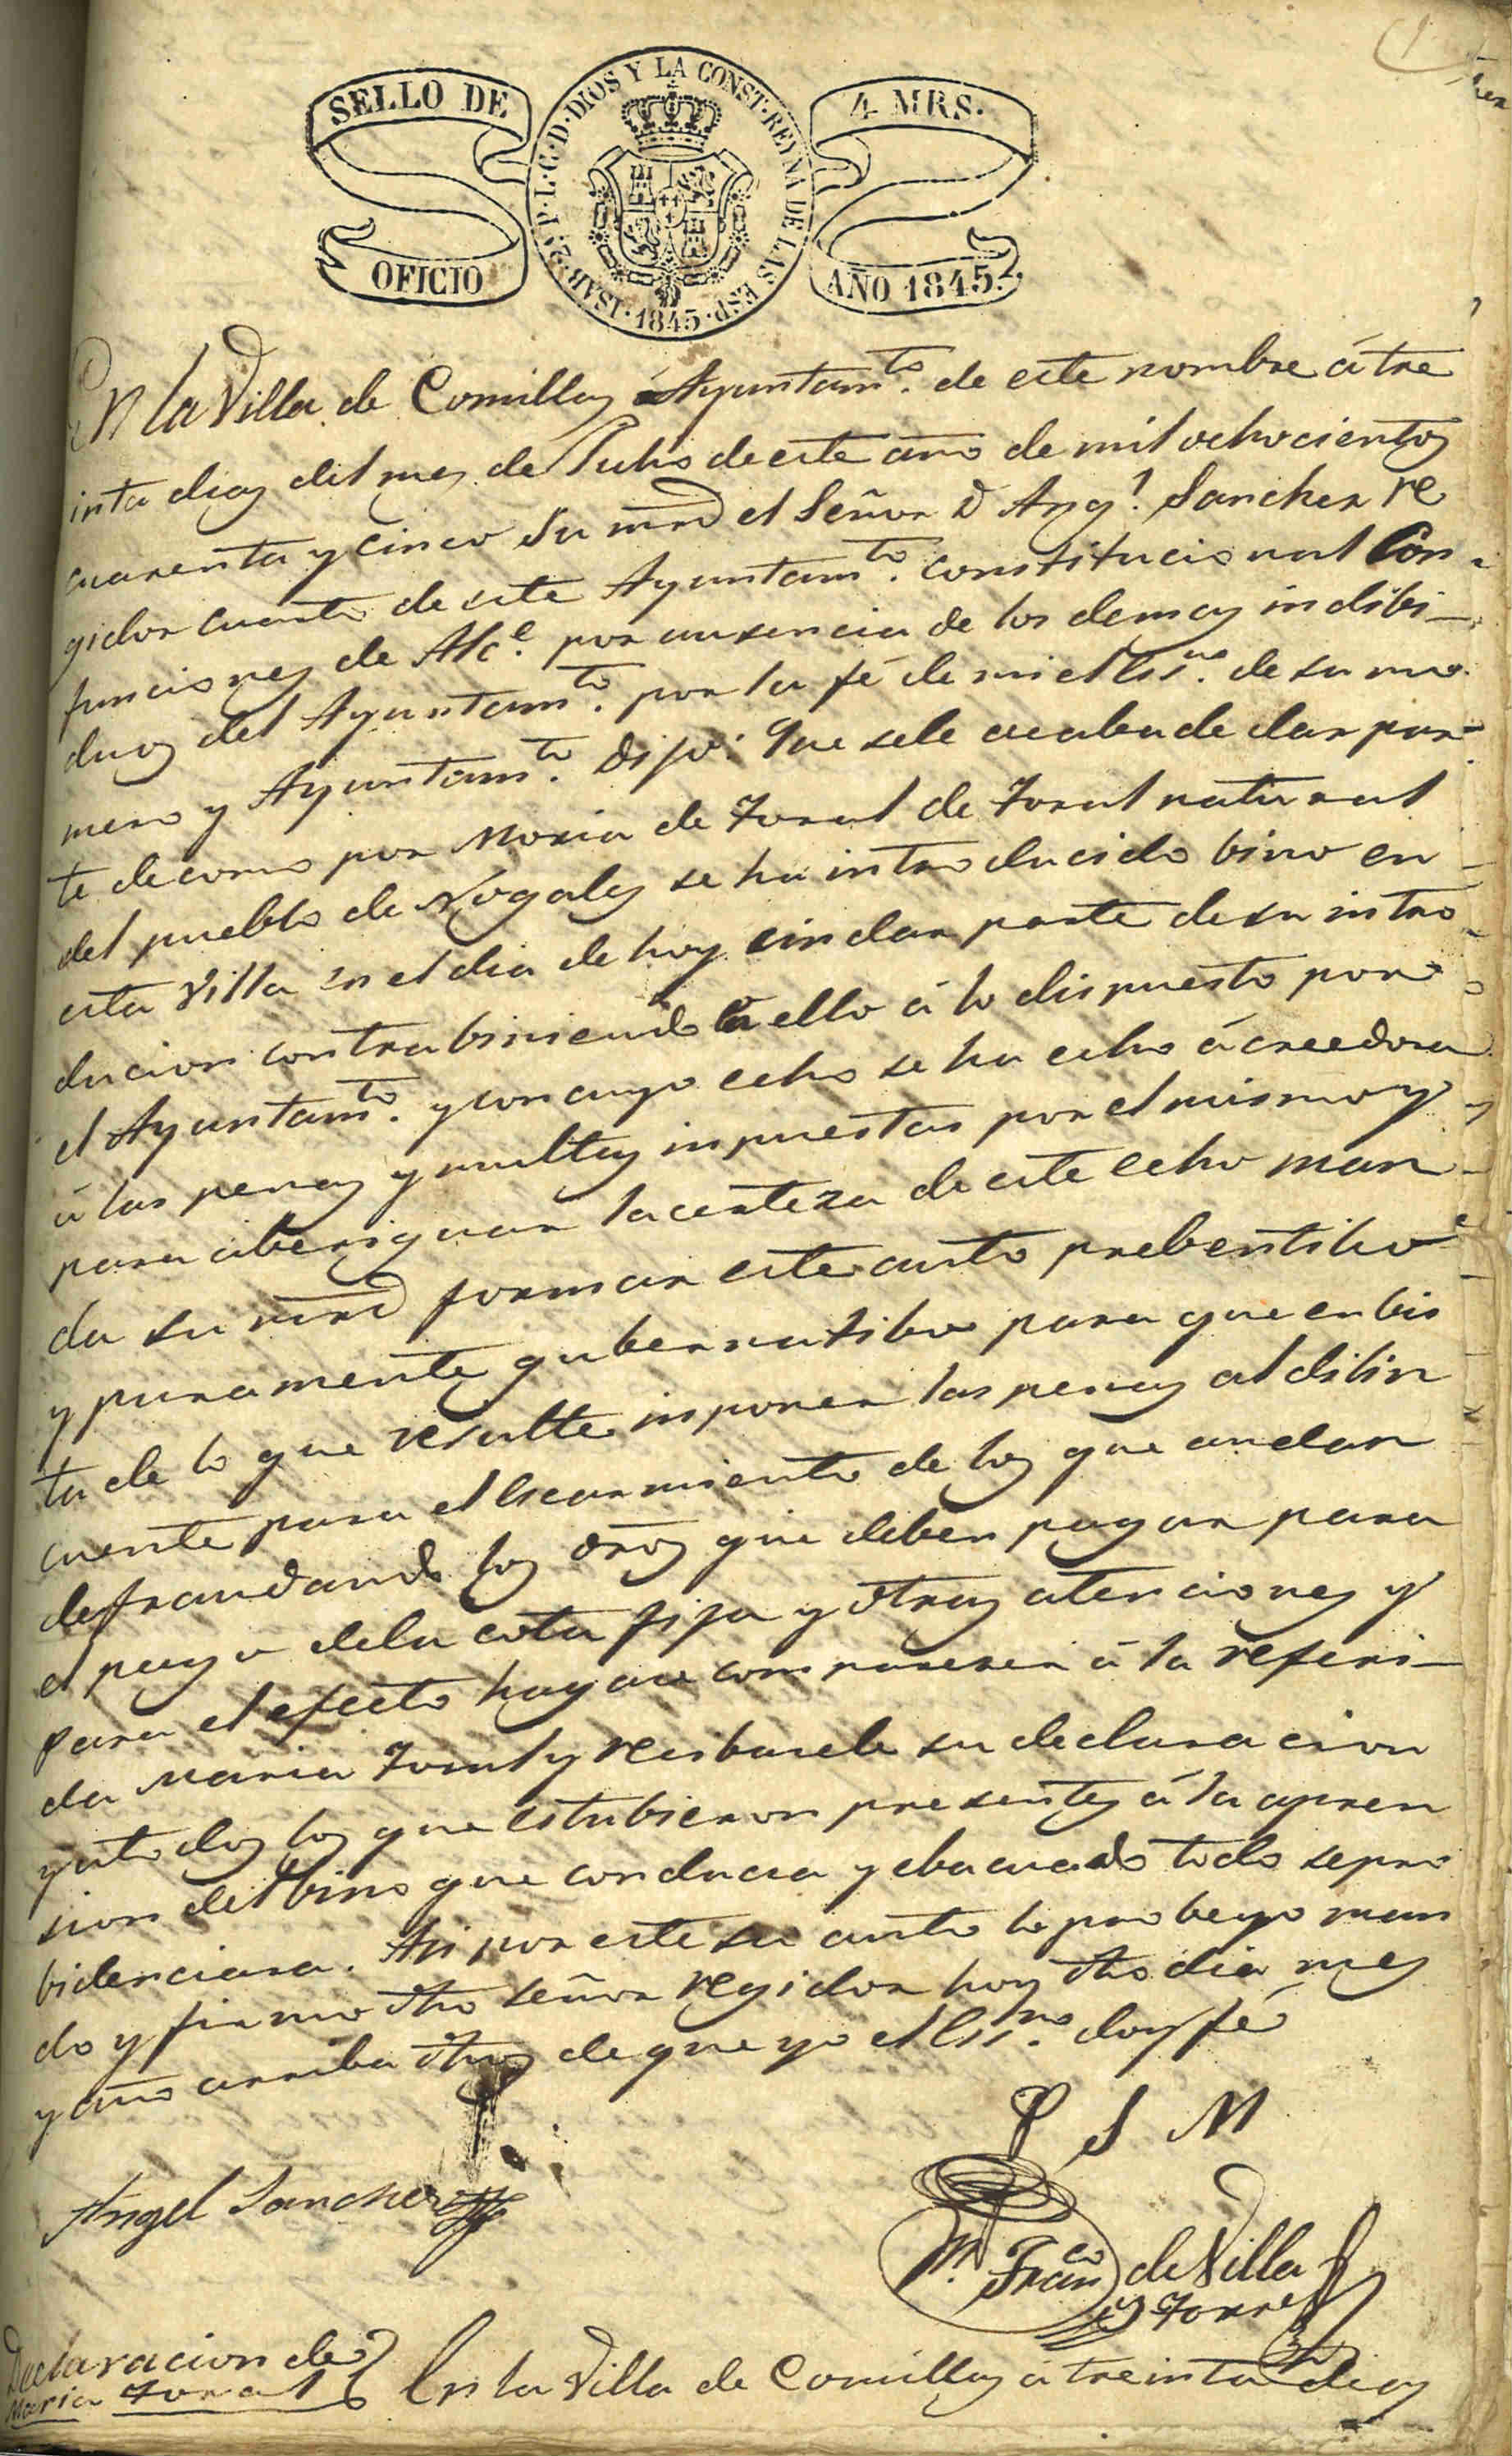 SELLO DE
OFICIO
ISAB. 2ª P. L. G. D. DIOS Y LA CONST. REYNA DE LAS ESP. 1845.
4 MRS.
AÑO 1845.
En la Villa de Comillas Ayuntamto. de este nombre á tre
inta dias del mes de Julio de este año de mil ochocientos
cuarenta y cinco Su mrd el Señor D Angl. Sanchez re
gidor cuarto de este Ayuntamto. constitucional Con
funciones de Alce. por ausencia de los demas indibi-
duos del Ayuntamto. por la fé de mi el Essno. de su nu
mero y Ayuntamto. Dijo: Que sele acaba de dar par-
te de como por Maria de Toral de Toral natural
del pueblo de Nogales se ha introducido bino en
esta Villa en el dia de hoy sin dar parte de su intro
ducion contrabiniendo ello á lo dispuesto por
el Ayuntamto. y con cuyo echo se ha echo ácreedora
á las penas y multas inpuestas por el mismo y
para aberiguar la certeza de este echo man
da su mrd formar este auto prebentibo
y puramente gubernatibo para que en bis
ta de lo que resulte inponer las penas al dilin
cuente para el escarmiento de los que andan
defraudando los dros que deben pagar para
el pago dela cota fija y otras atenciones y
para el efecto hagase comparecer á la referi-
da Maria Toral y recibasele su declaracion
y á todos los que estubieron presentes á la apren
sion del bino que conducia y ebacuado todo se pro
bidenciara. Asi por este su auto lo probeyo man
do y firmo dho señor regidor hoy dho dia mes
y año arriba dhos de que yo el Essno. doy fé
P S M
Angel Sanchez
Franco de Villa
y Torre
Declaracion de
Maria Toral
En la Villa de Comillas á treinta dias